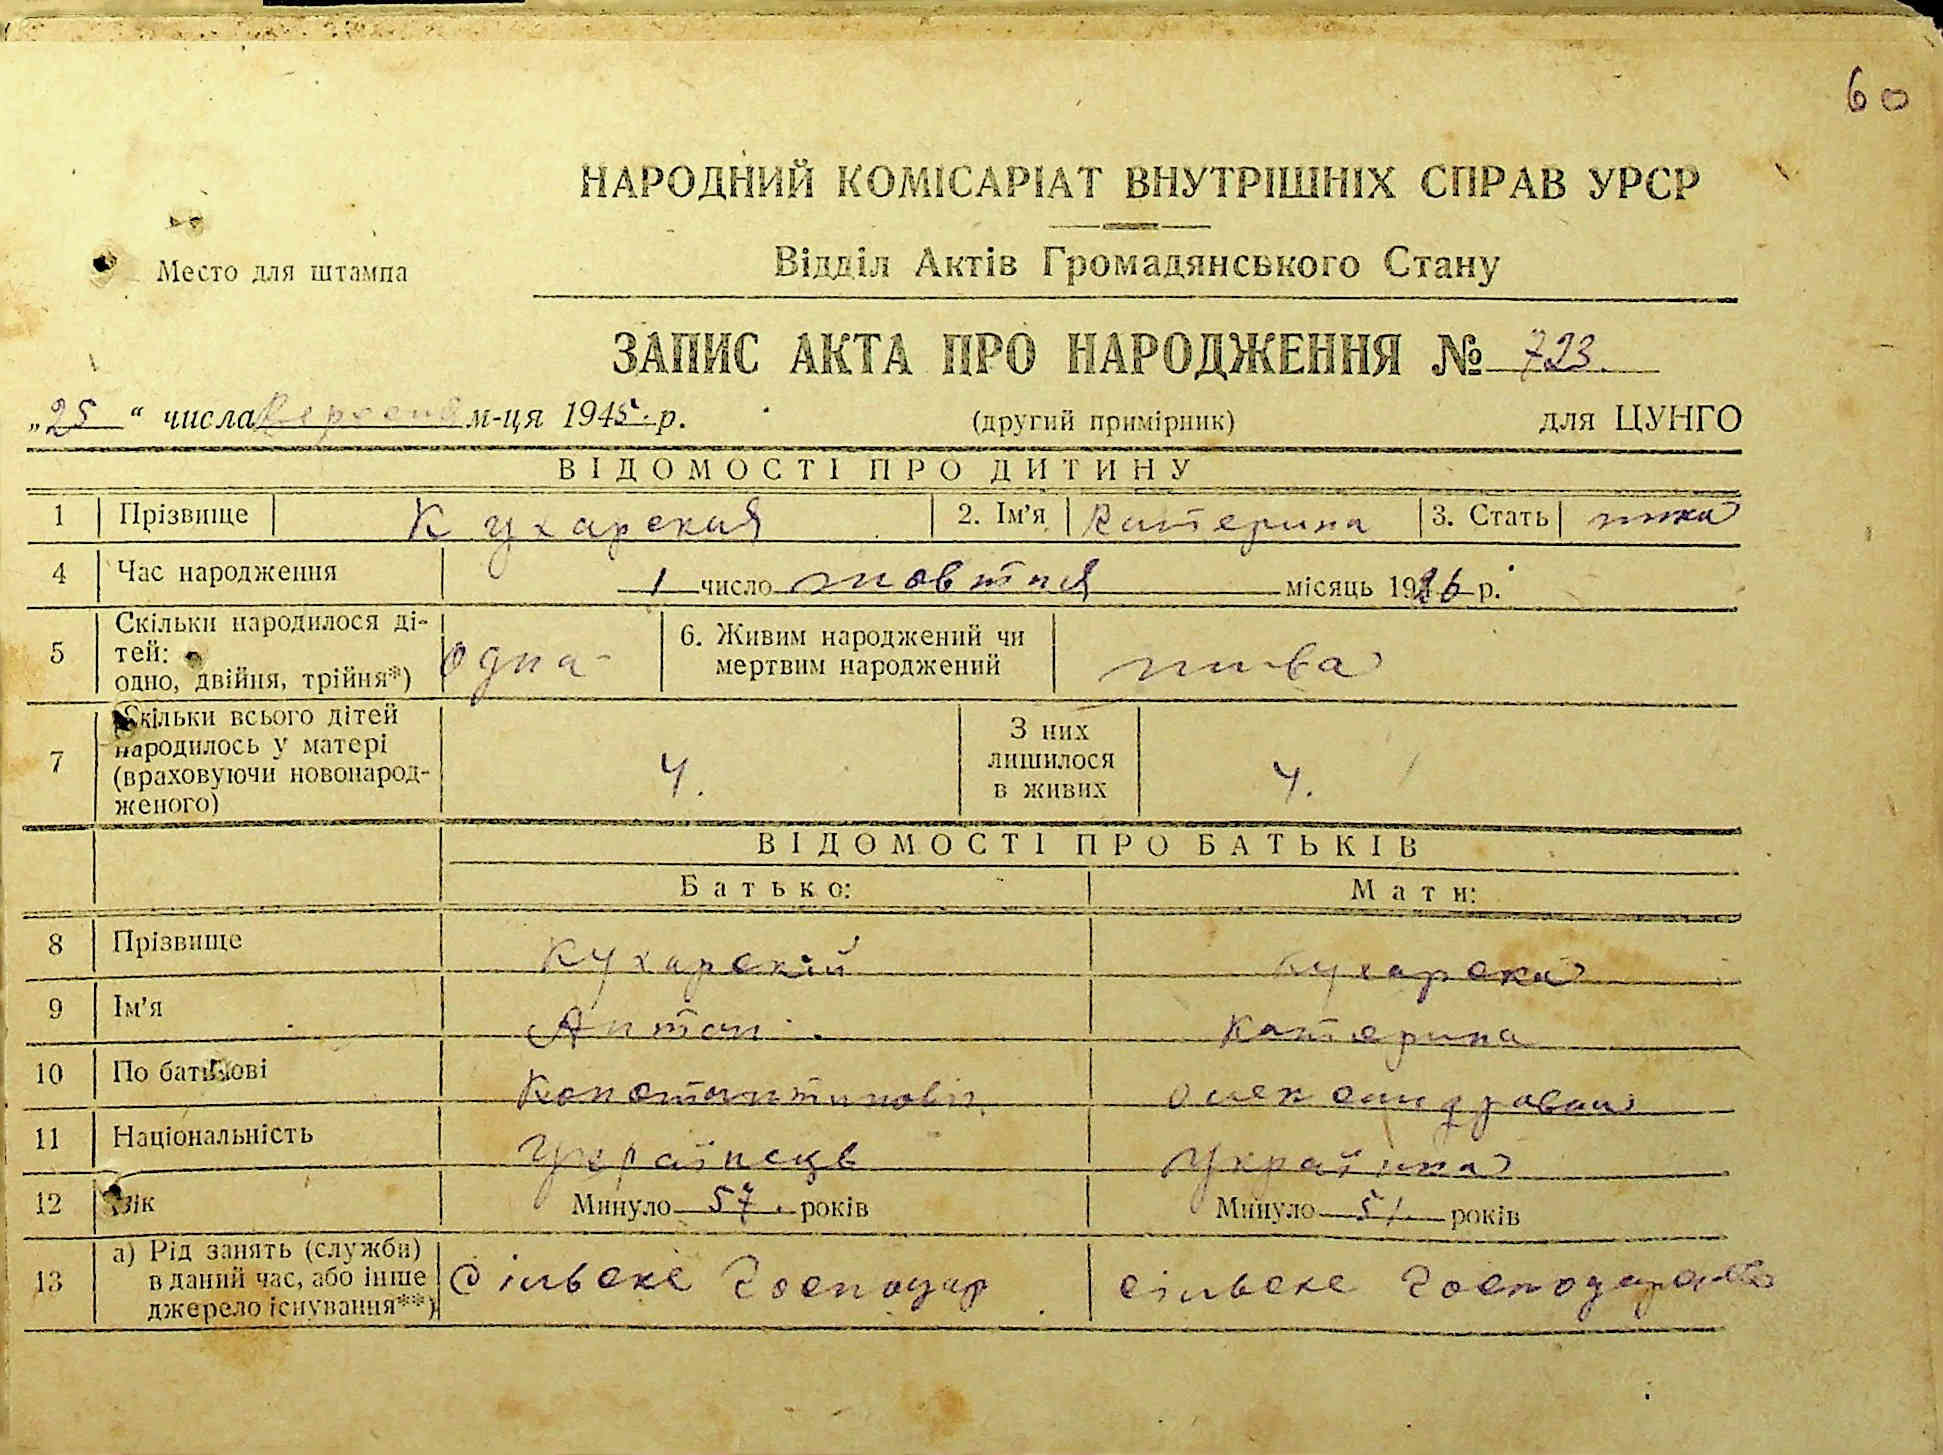 60
НАРОДНИЙ КОМІСАРІАТ ВНУТРІШНІХ СПРАВ УРСР
Відділ Актів Громадянського Стану
Место для штампа
ЗАПИС АКТА ПРО НАРОДЖЕННЯ № 723.
„25“ числа Вересня м-ця 1945. р. (другий примірник) для ЦУНГО
ВІДОМОСТІ ПРО ДИТИНУ
1 Прізвище Кухарская 2. Ім’я Катерина 3. Стать
4 Час народження 1 число жовтня місяць 1926 р.
5 Скільки народилося ді-
тей:
одно, двійня, трійня*) одна 6. Живим народжений чи
мертвим народжений жива
7 Скільки всього дітей
народилось у матері
(враховуючи новонарод-
женого) 4. З них
лишилося
в живих 4.
ВІДОМОСТІ ПРО БАТЬКІВ
Батько: Мати:
8 Прізвище Кухарский Кухарска
9 Ім’я Антон. Катерина
10 По батькові Константинович Олександровна
11 Національність Українець Українка
12 Вік Минуло 57. років Минуло 51. років
13 а) Рід занять (служби)
в даний час, або інше
джерело існування**) Сільске господар сільске господарство